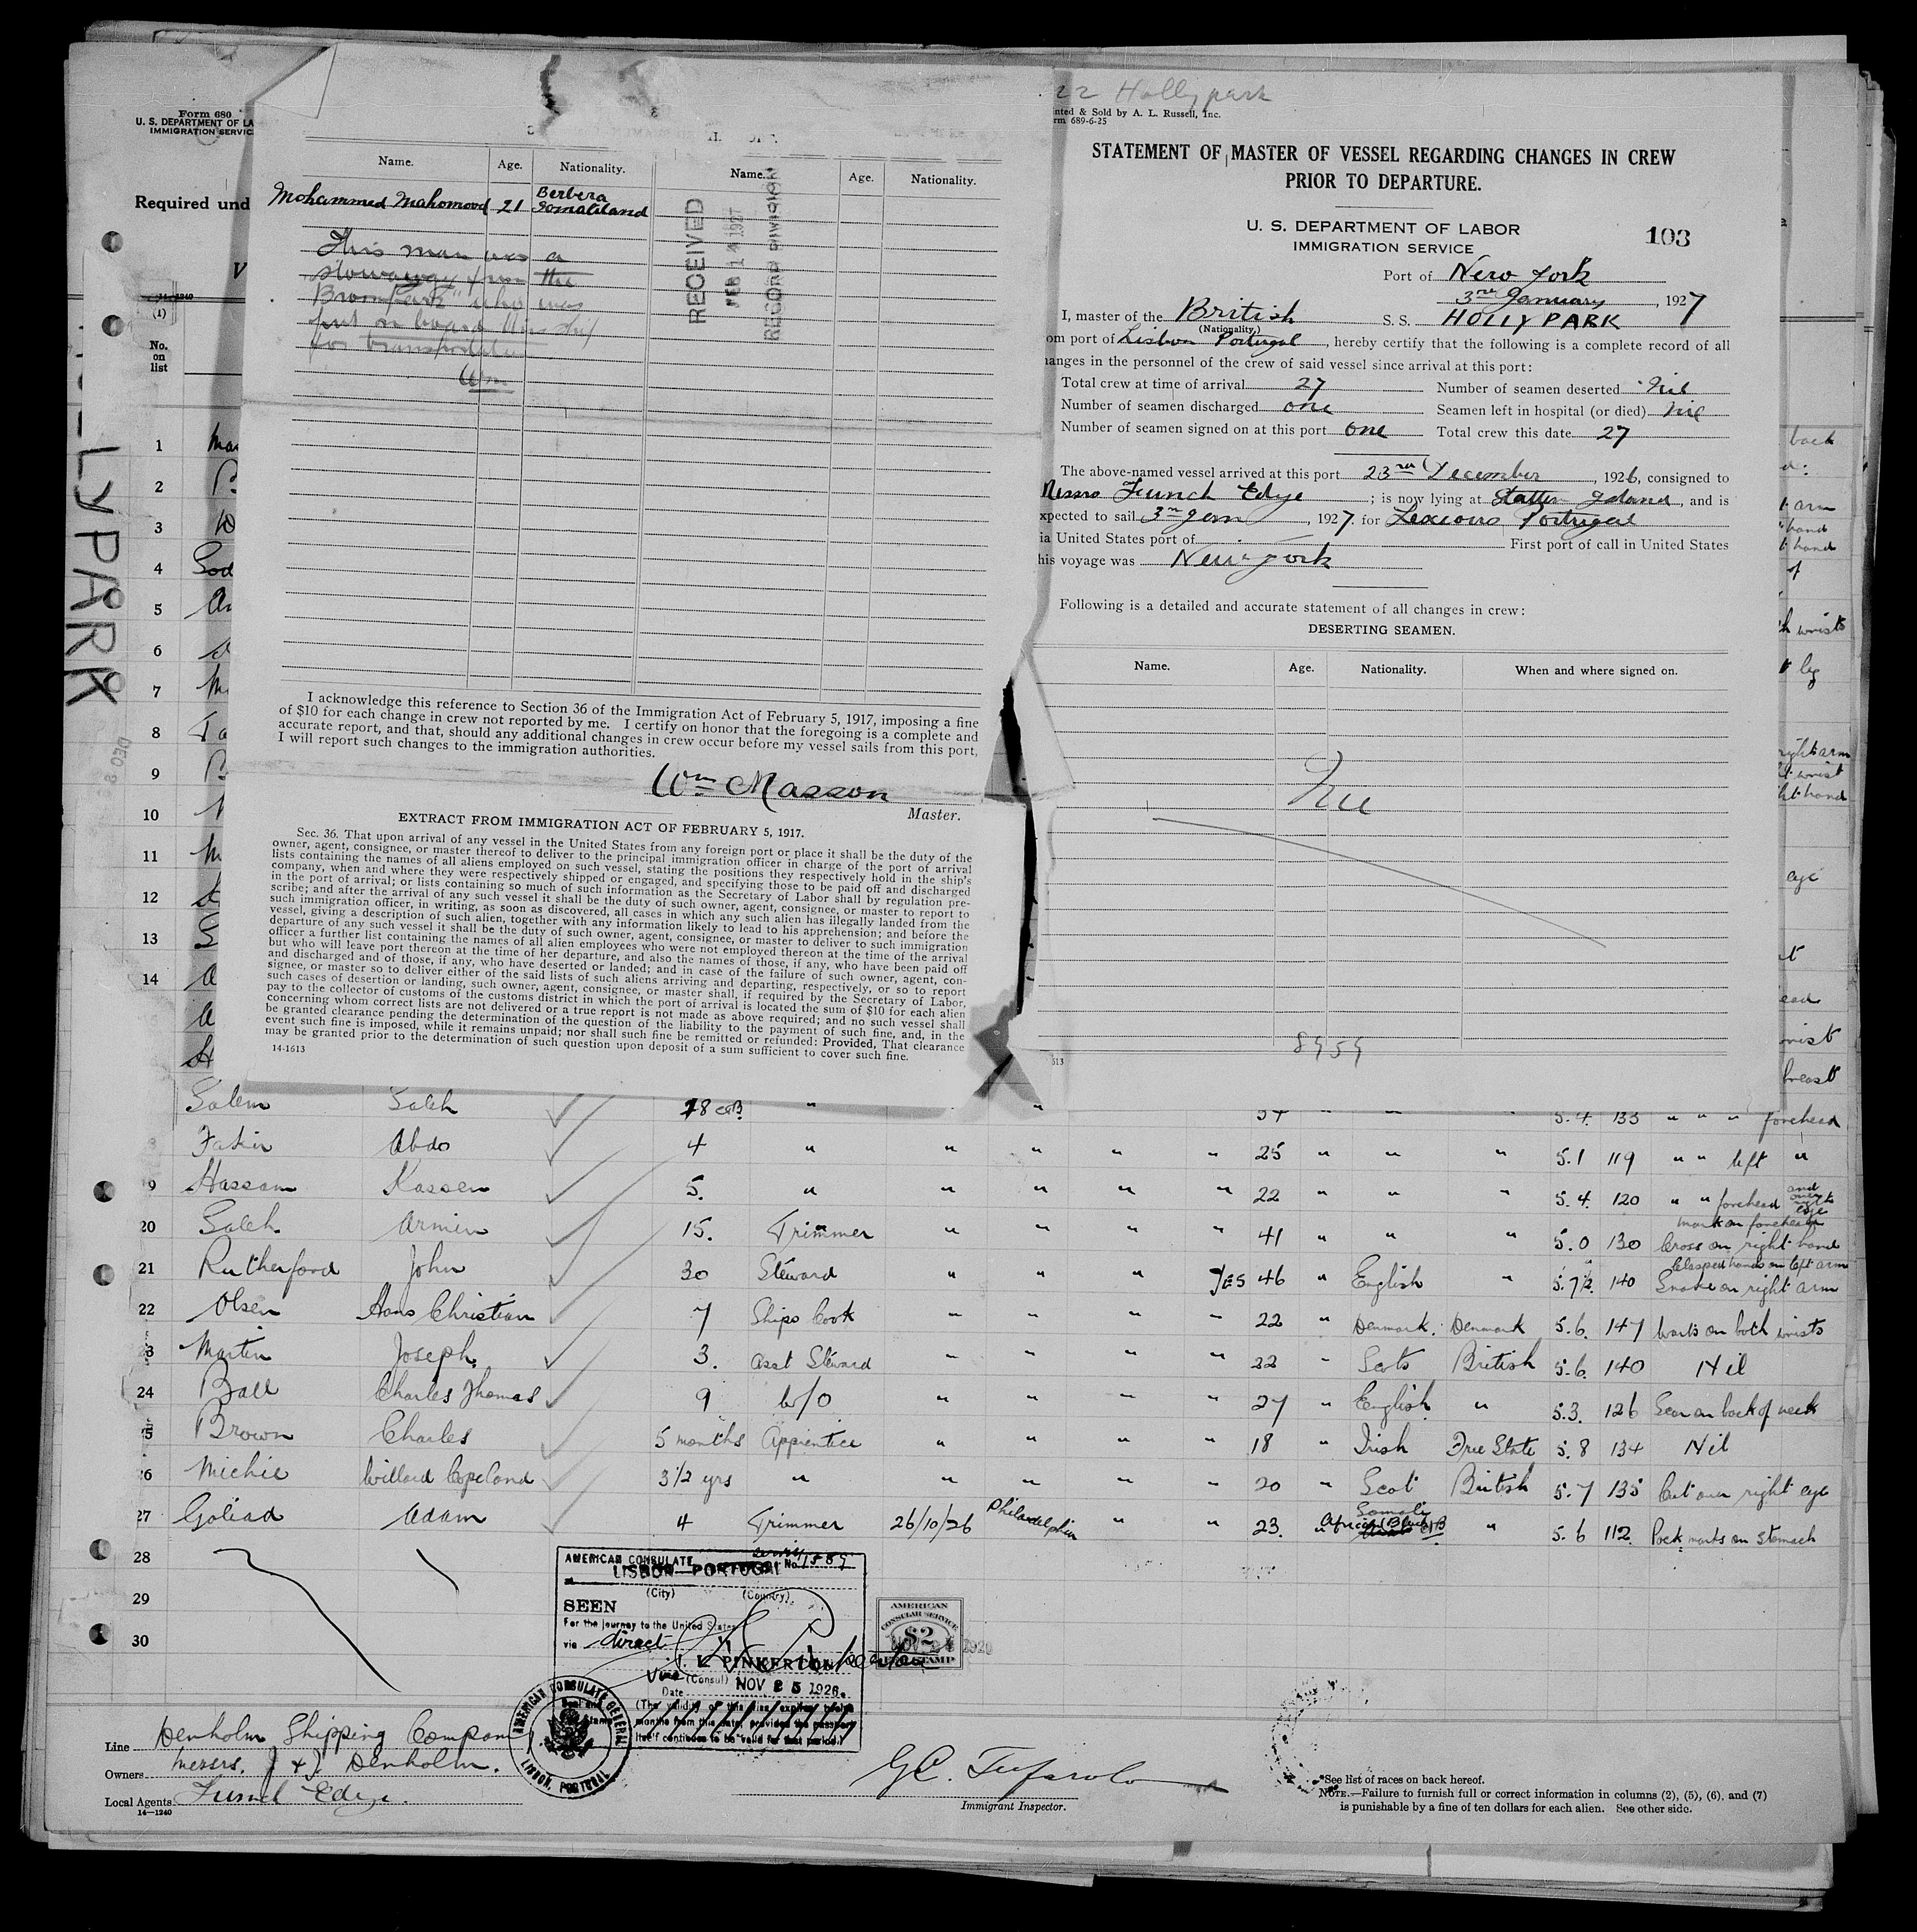 Form 680
U. S. DEPARTMENT OF LA
IMMIGRATION SERVIC
Required und
V
14-1240
(1)
No.
on
list
HOLLYPARK
Name. Age. Nationality. Name. Age. Nationality.
Mohammed Mahomood 21 Berbera
Somaliland
This man was a
stowaway from the
"Brompark" who was
put on board this ship
for transportation
Wm
RECEIVED
FEB 14 1927
RECORD DIVISION
I acknowledge this reference to Section 36 of the Immigration Act of February 5, 1917, imposing a fine
of $10 for each change in crew not reported by me. I certify on honor that the foregoing is a complete and
accurate report, and that, should any additional changes in crew occur before my vessel sails from this port,
I will report such changes to the immigration authorities.
Wm Masson
Master.
EXTRACT FROM IMMIGRATION ACT OF FEBRUARY 5, 1917.
Sec. 36. That upon arrival of any vessel in the United States from any foreign port or place it shall be the duty of the
owner, agent, consignee, or master thereof to deliver to the principal immigration officer in charge of the port of arrival
lists containing the names of all aliens employed on such vessel, stating the positions they respectively hold in the ship's
company, when and where they were respectively shipped or engaged, and specifying those to be paid off and discharged
in the port of arrival; or lists containing so much of such information as the Secretary of Labor shall by regulation pre-
scribe; and after the arrival of any such vessel it shall be the duty of such owner, agent, consignee, or master to report to
such immigration officer, in writing, as soon as discovered, all cases in which any such alien has illegally landed from the
vessel, giving a description of such alien, together with any information likely to lead to his apprehension; and before the
departure of any such vessel it shall be the duty of such owner, agent, consignee, or master to deliver to such immigration
officer a further list containing the names of all alien employees who were not employed thereon at the time of the arrival
but who will leave port thereon at the time of her departure, and also the names of those, if any, who have been paid off
and discharged and of those, if any, who have deserted or landed; and in case of the failure of such owner, agent, con-
signee, or master so to deliver either of the said lists of such aliens arriving and departing, respectively, or so to report
such cases of desertion or landing, such owner, agent, consignee, or master shall, if required by the Secretary of Labor,
pay to the collector of customs of the customs district in which the port of arrival is located the sum of $10 for each alien
concerning whom correct lists are not delivered or a true report is not made as above required; and no such vessel shall
be granted clearance pending the determination of the question of the liability to the payment of such fine, and, in the
event such fine is imposed, while it remains unpaid; nor shall such fine be remitted or refunded: Provided, That clearance
may be granted prior to the determination of such question upon deposit of a sum sufficient to cover such fine.
14-1613
22 Hollypark
nted & Sold by A. L. Russell, Inc.
rm 689-6-25
STATEMENT OF MASTER OF VESSEL REGARDING CHANGES IN CREW
PRIOR TO DEPARTURE.
U. S. DEPARTMENT OF LABOR
IMMIGRATION SERVICE
103
Port of New York
3rd January, 1927
I, master of the British S. S. HOLLYPARK
(Nationality.)
om port of Lisbon Portugal, hereby certify that the following is a complete record of all
hanges in the personnel of the crew of said vessel since arrival at this port:
Total crew at time of arrival 27 Number of seamen deserted Nil
Number of seamen discharged one Seamen left in hospital (or died) Nil
Number of seamen signed on at this port one Total crew this date 27
The above-named vessel arrived at this port 23rd December, 1926, consigned to
Messrs Funch Edye; is now lying at Statten Island, and is
xpected to sail 3rd Jan, 1927. for Lexious Portugal
ia United States port of First port of call in United States
his voyage was New York
Following is a detailed and accurate statement of all changes in crew:
DESERTING SEAMEN.
Name. Age. Nationality. When and where signed on.
Nil
8959
613
1
2
3
4
5
6
7
8
9
10
11
12
13
14
Salem Saleh 18 " " 54 " " " 5.4. 133 " " " forehead
Fakir Abdo 4 " " " " " 25 " " " 5.1 119 " " left "
19 Hassam Kassen 5. " " " " " 22 " " " 5.4. 120 " " forehead and over right eye
20 Saleh Armin 15. Trimmer " " " " 41 " " " 5.0 130 mark on forehead Cross on right hand
21 Rutherford John 30 Steward " " " YES 46 " English " 5.7½. 140 Clasped hands on left arm Snake on right arm
22 Olsen Hans Christian 7 Ships Cook " " " " 22 " Denmark. Denmark 5.6. 147 Warts on both wrists
23 Martin Joseph. 3. Asst Steward " " " " 22 " Scots British 5.6. 140 Nil
24 Ball Charles Thomas 9 W/O " " " " 27 " English " 5.3. 126 Scar on back of neck
25 Brown Charles 5 months Apprentice " " " " 18 " Irish Free State 5.8 134 Nil
26 Michie Willard Copeland 3 1/2 yrs " " " " " 20 " Scot British 5.7 135 Cut over right eye
27 Goliad Adam 4 Trimmer 26/10/26 Philadelphia " " 23. " Somali African (Black) " 5.6 112. Pock marks on stomach
28
29
30
AMERICAN CONSULATE
LISBON PORTUGAL
(City) (Country)
SEEN
For the journey to the United States
via direct
PINKERTON
Vice (Consul)
Date NOV 25 1926.
(The validity of this visa expires twelve
months from this date, provided the passport
itself continues to be valid for that period.)
AMERICAN CONSULATE GENERAL
LISBON, PORTUGAL
AMERICAN
CONSULAR SERVICE
$2
FEE STAMP
Line Denholm Shipping Company.
Owners Messrs. J & J Denholm.
Local Agents Funch Edye.
14—1240
Immigrant Inspector.
*See list of races on back hereof.
NOTE.—Failure to furnish full or correct information in columns (2), (5), (6), and (7)
is punishable by a fine of ten dollars for each alien. See other side.
back
arm
hand
hand
of
wrists
leg
right arm
wrist
hand
eye
wrist
breast